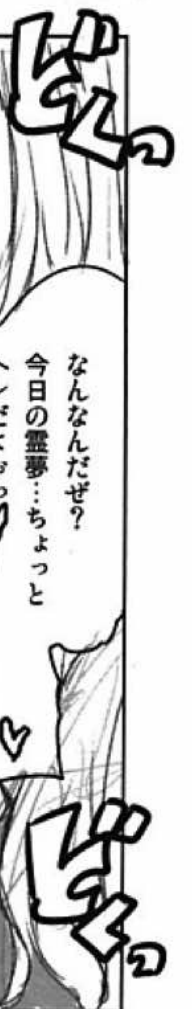 ビクっ
なんなんだぜ?
今日の霊夢…ちょっと
ビクっ